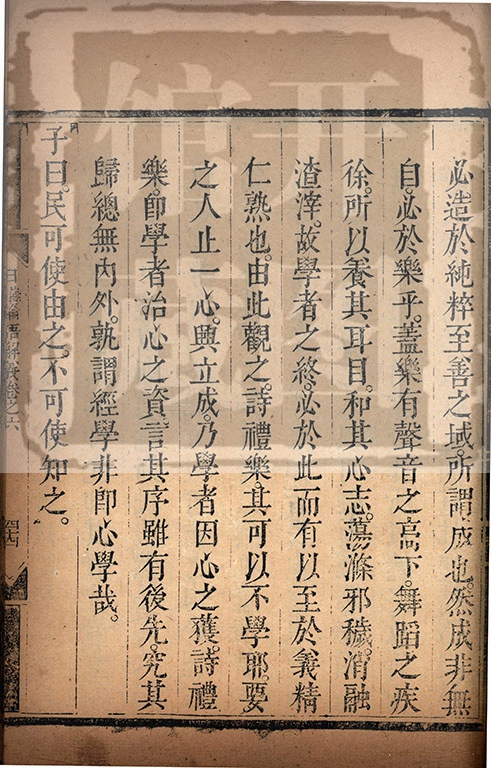 必造於純粹至善之域。所謂成也。然成非無
自。必於樂乎。蓋樂有聲音之高下。舞蹈之疾
徐。所以養其耳目。和其心志。蕩滌邪穢。消融
渣滓。故學者之終。必於此而有以至於義精
仁熟也。由此觀之。詩禮樂。其可以不學耶。要
之人止一心。興立成。乃學者因心之獲。詩禮
樂。即學者治心之資。言其序雖有後先。究其
歸總無內外。孰謂經學非即心學哉。
子曰。民可使由之。不可使知之。
日講論語解義卷之六